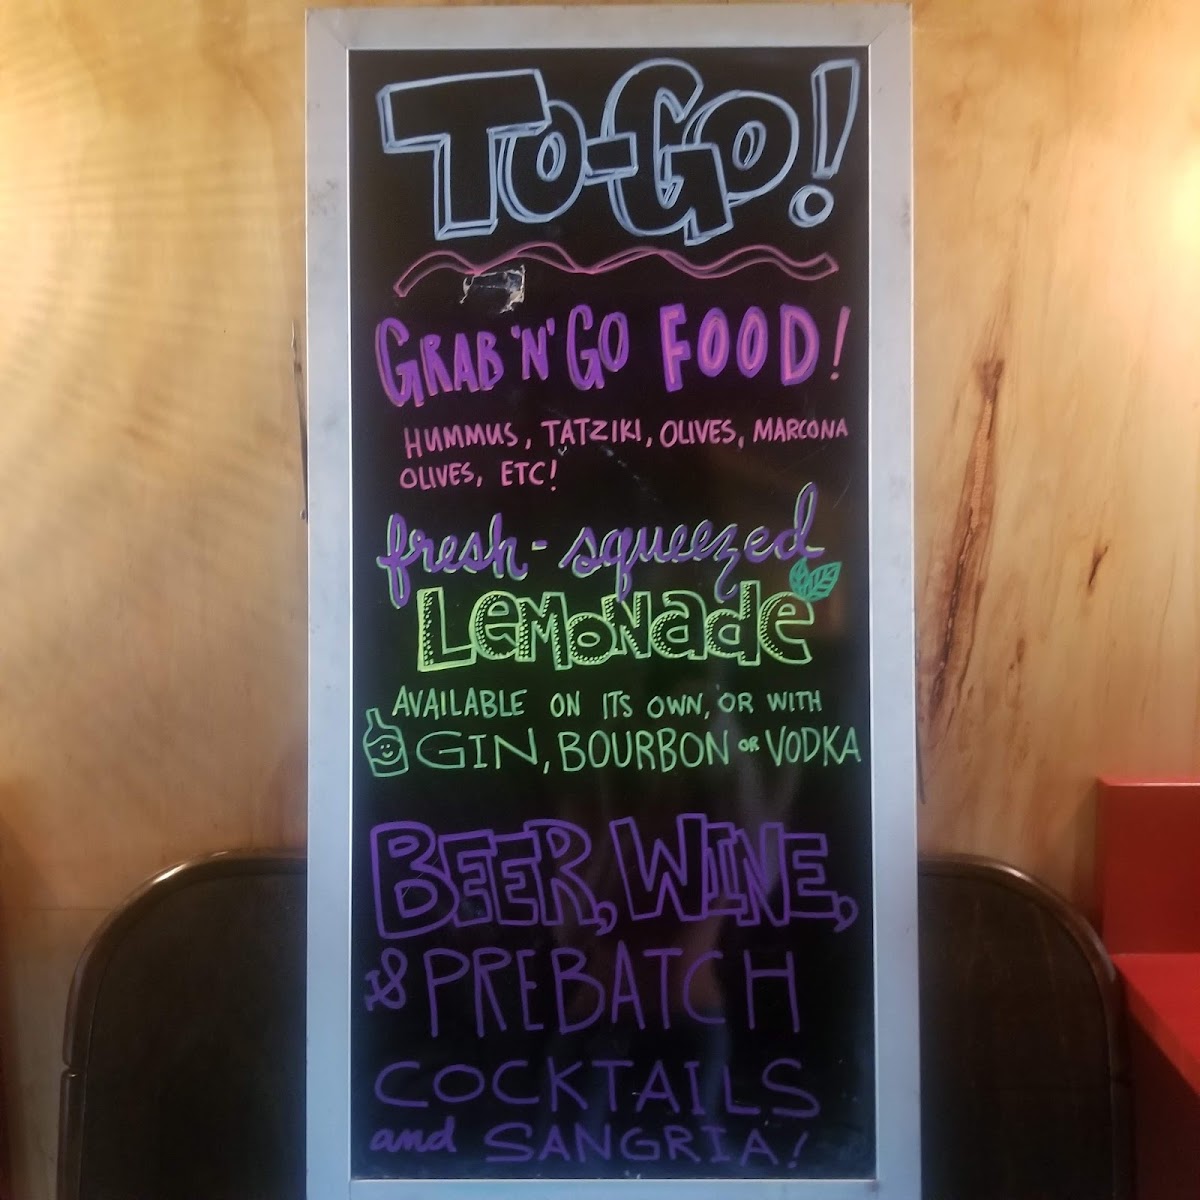 To-Go!
GRAB 'N' GO FOOD!
HUMMUS, TATZIKI, OLIVES, MARCONA
OLIVES, ETC!
fresh-squeezed
LeMoNade
AVAILABLE ON ITS OWN, OR WITH
GIN, BOURBON OR VODKA
BEER, WINE,
& PREBATCH
COCKTAILS
and SANGRIA!